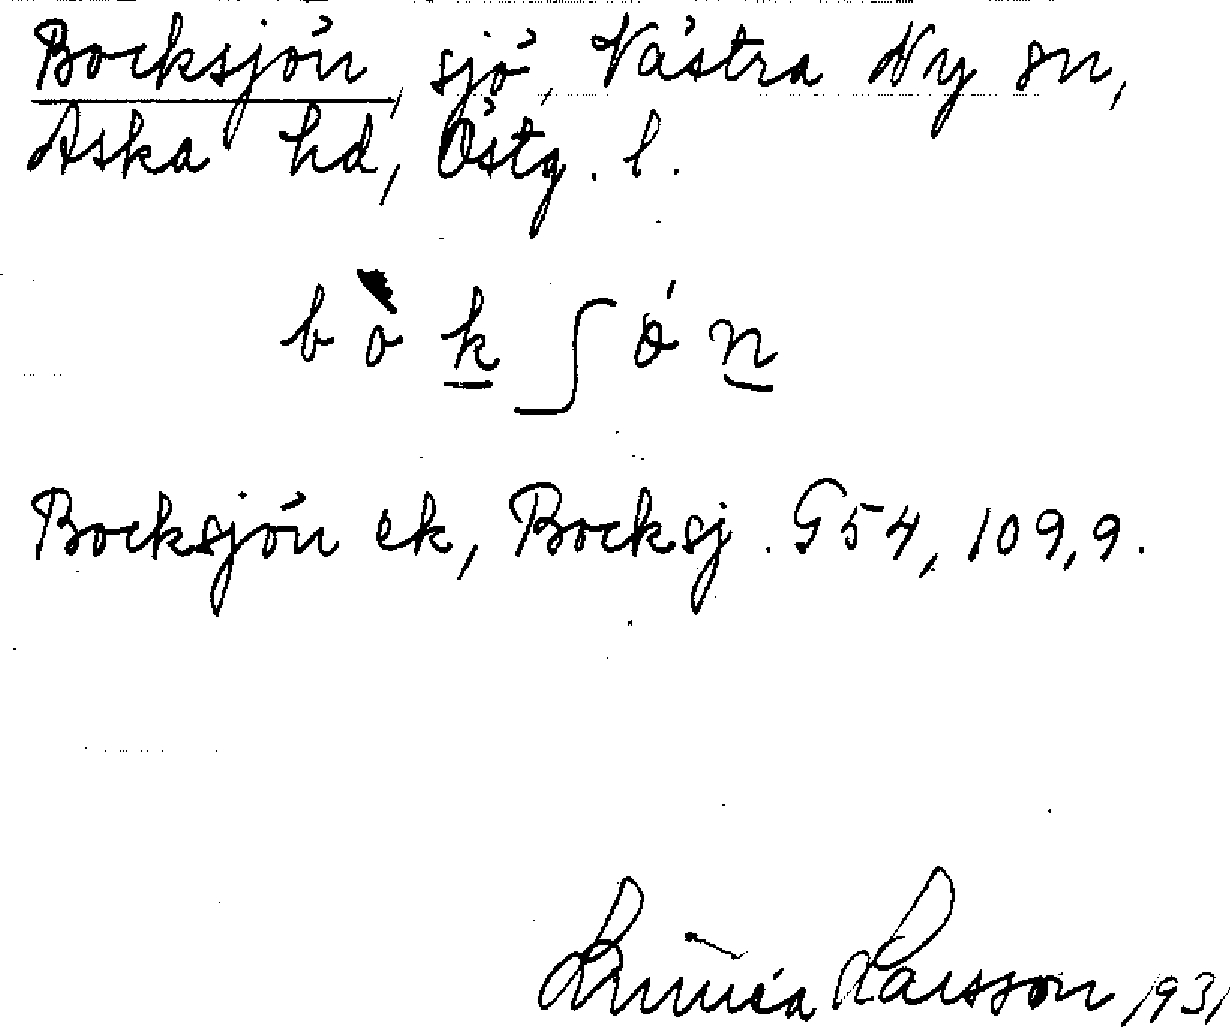 Bocksjön, sjö, Västra Ny sn,
Aska hd, Östg. l.
bòkʃǿn
Bocksjön ek, Bocksj. G54, 109,9.
Linnéa Larsson 1931